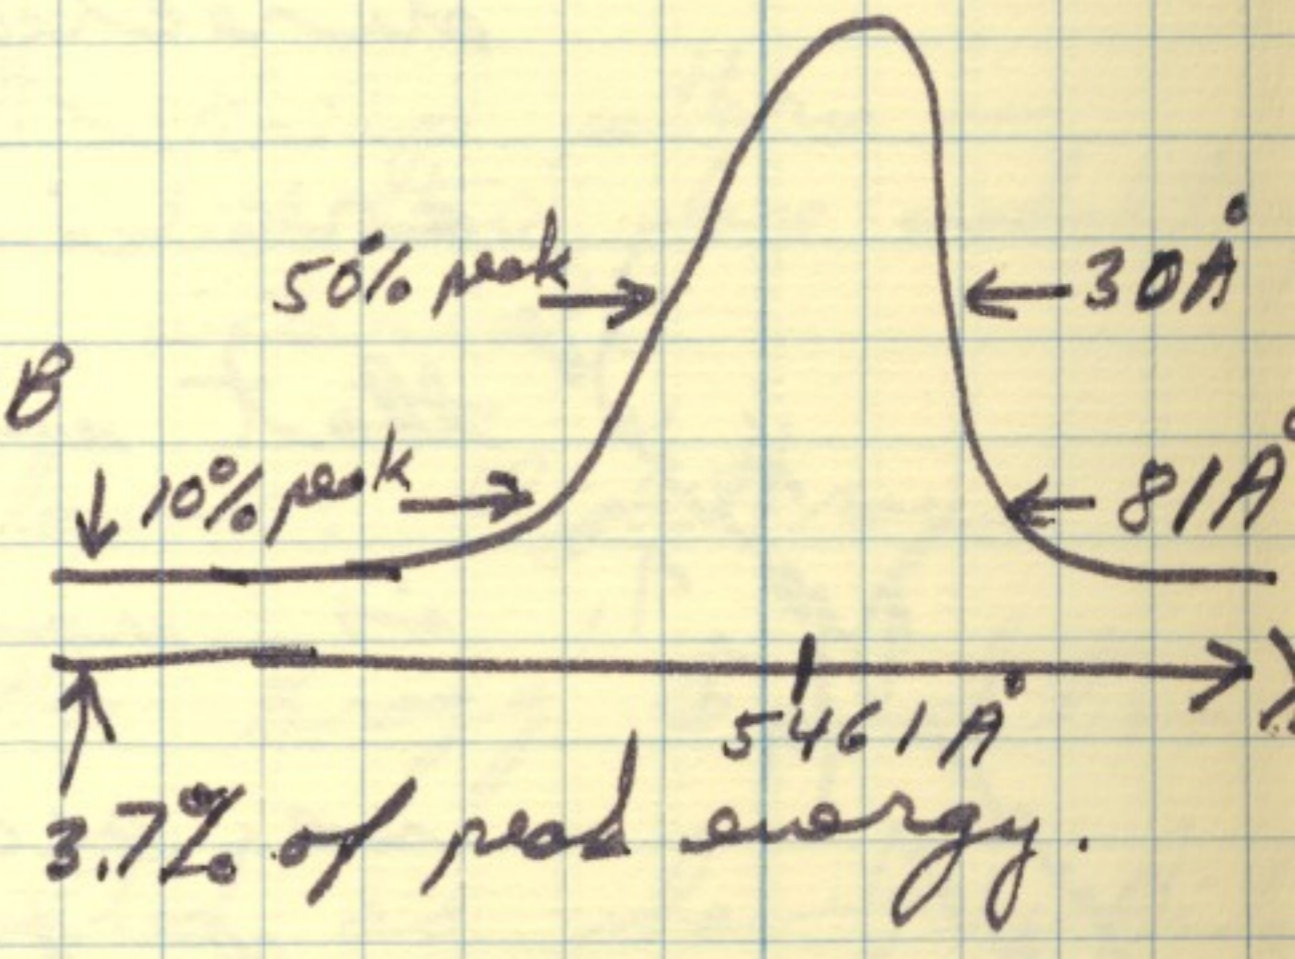 50% peak → ← 30Å
B
↓ 10% peak → ← 81Å
λ
5461Å
3.7% of peak energy.